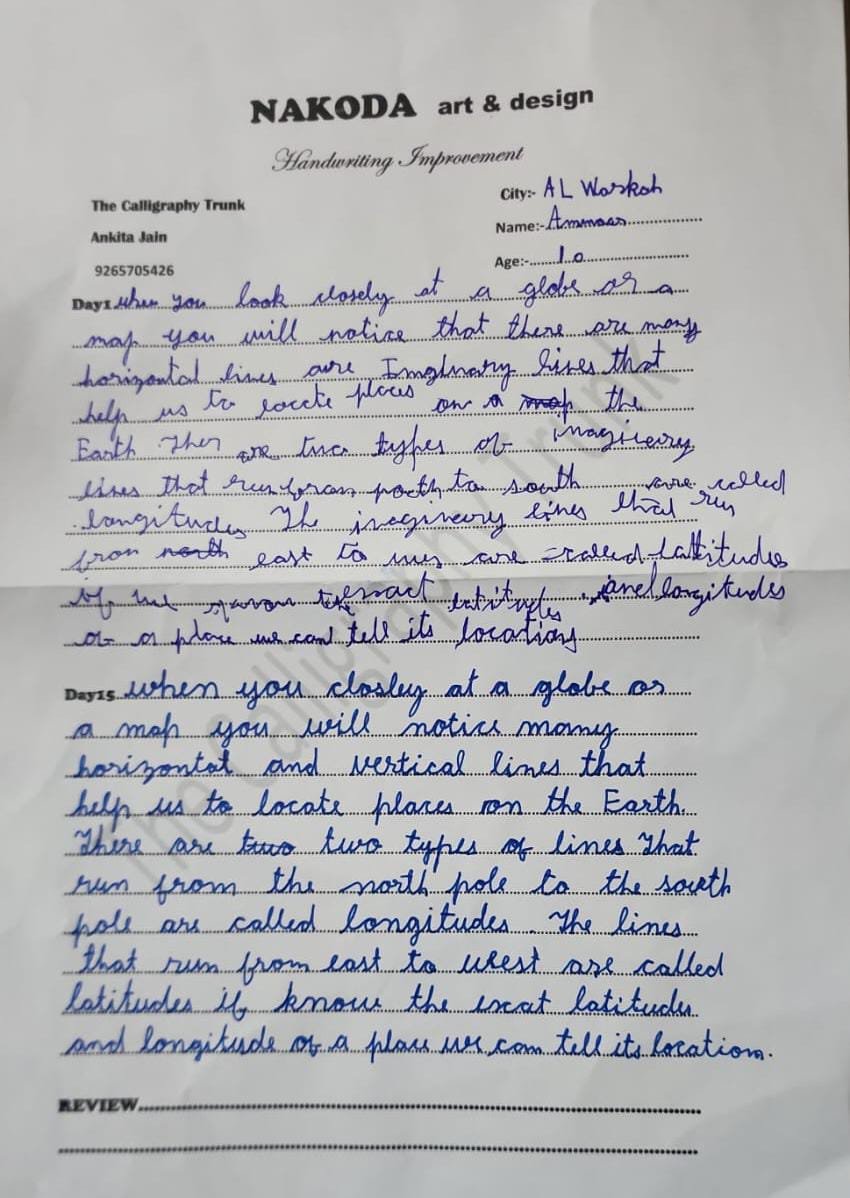 NAKODA art & design
Handwriting Improvement
The Calligraphy Trunk
City:- AL Warkah
Ankita Jain
Name:- Ammaar
9265705426
Age:- 10
Day1 when you look closely at a globe or a
map you will notice that there are many
horizontal lines are Imginary lines that
help us to locate places on a map the
Earth Ther are two types of imagineary
lines that run from to south are called
longitudes The imagineary lines that run
from north east to are called lattitudes
If exact and longitudes
of a place we can tell its location
Day15 when you closley at a globe or
a map you will notice many
horizontal and vertical lines that
help us to locate places on the Earth.
There are two two types of lines That
run from the north pole to the south
pole are called longitudes. The lines
that run from east to west are called
latitudes if know the excat latitudes
and longitude of a place we can tell its location.
REVIEW
The Calligraphy Trunk